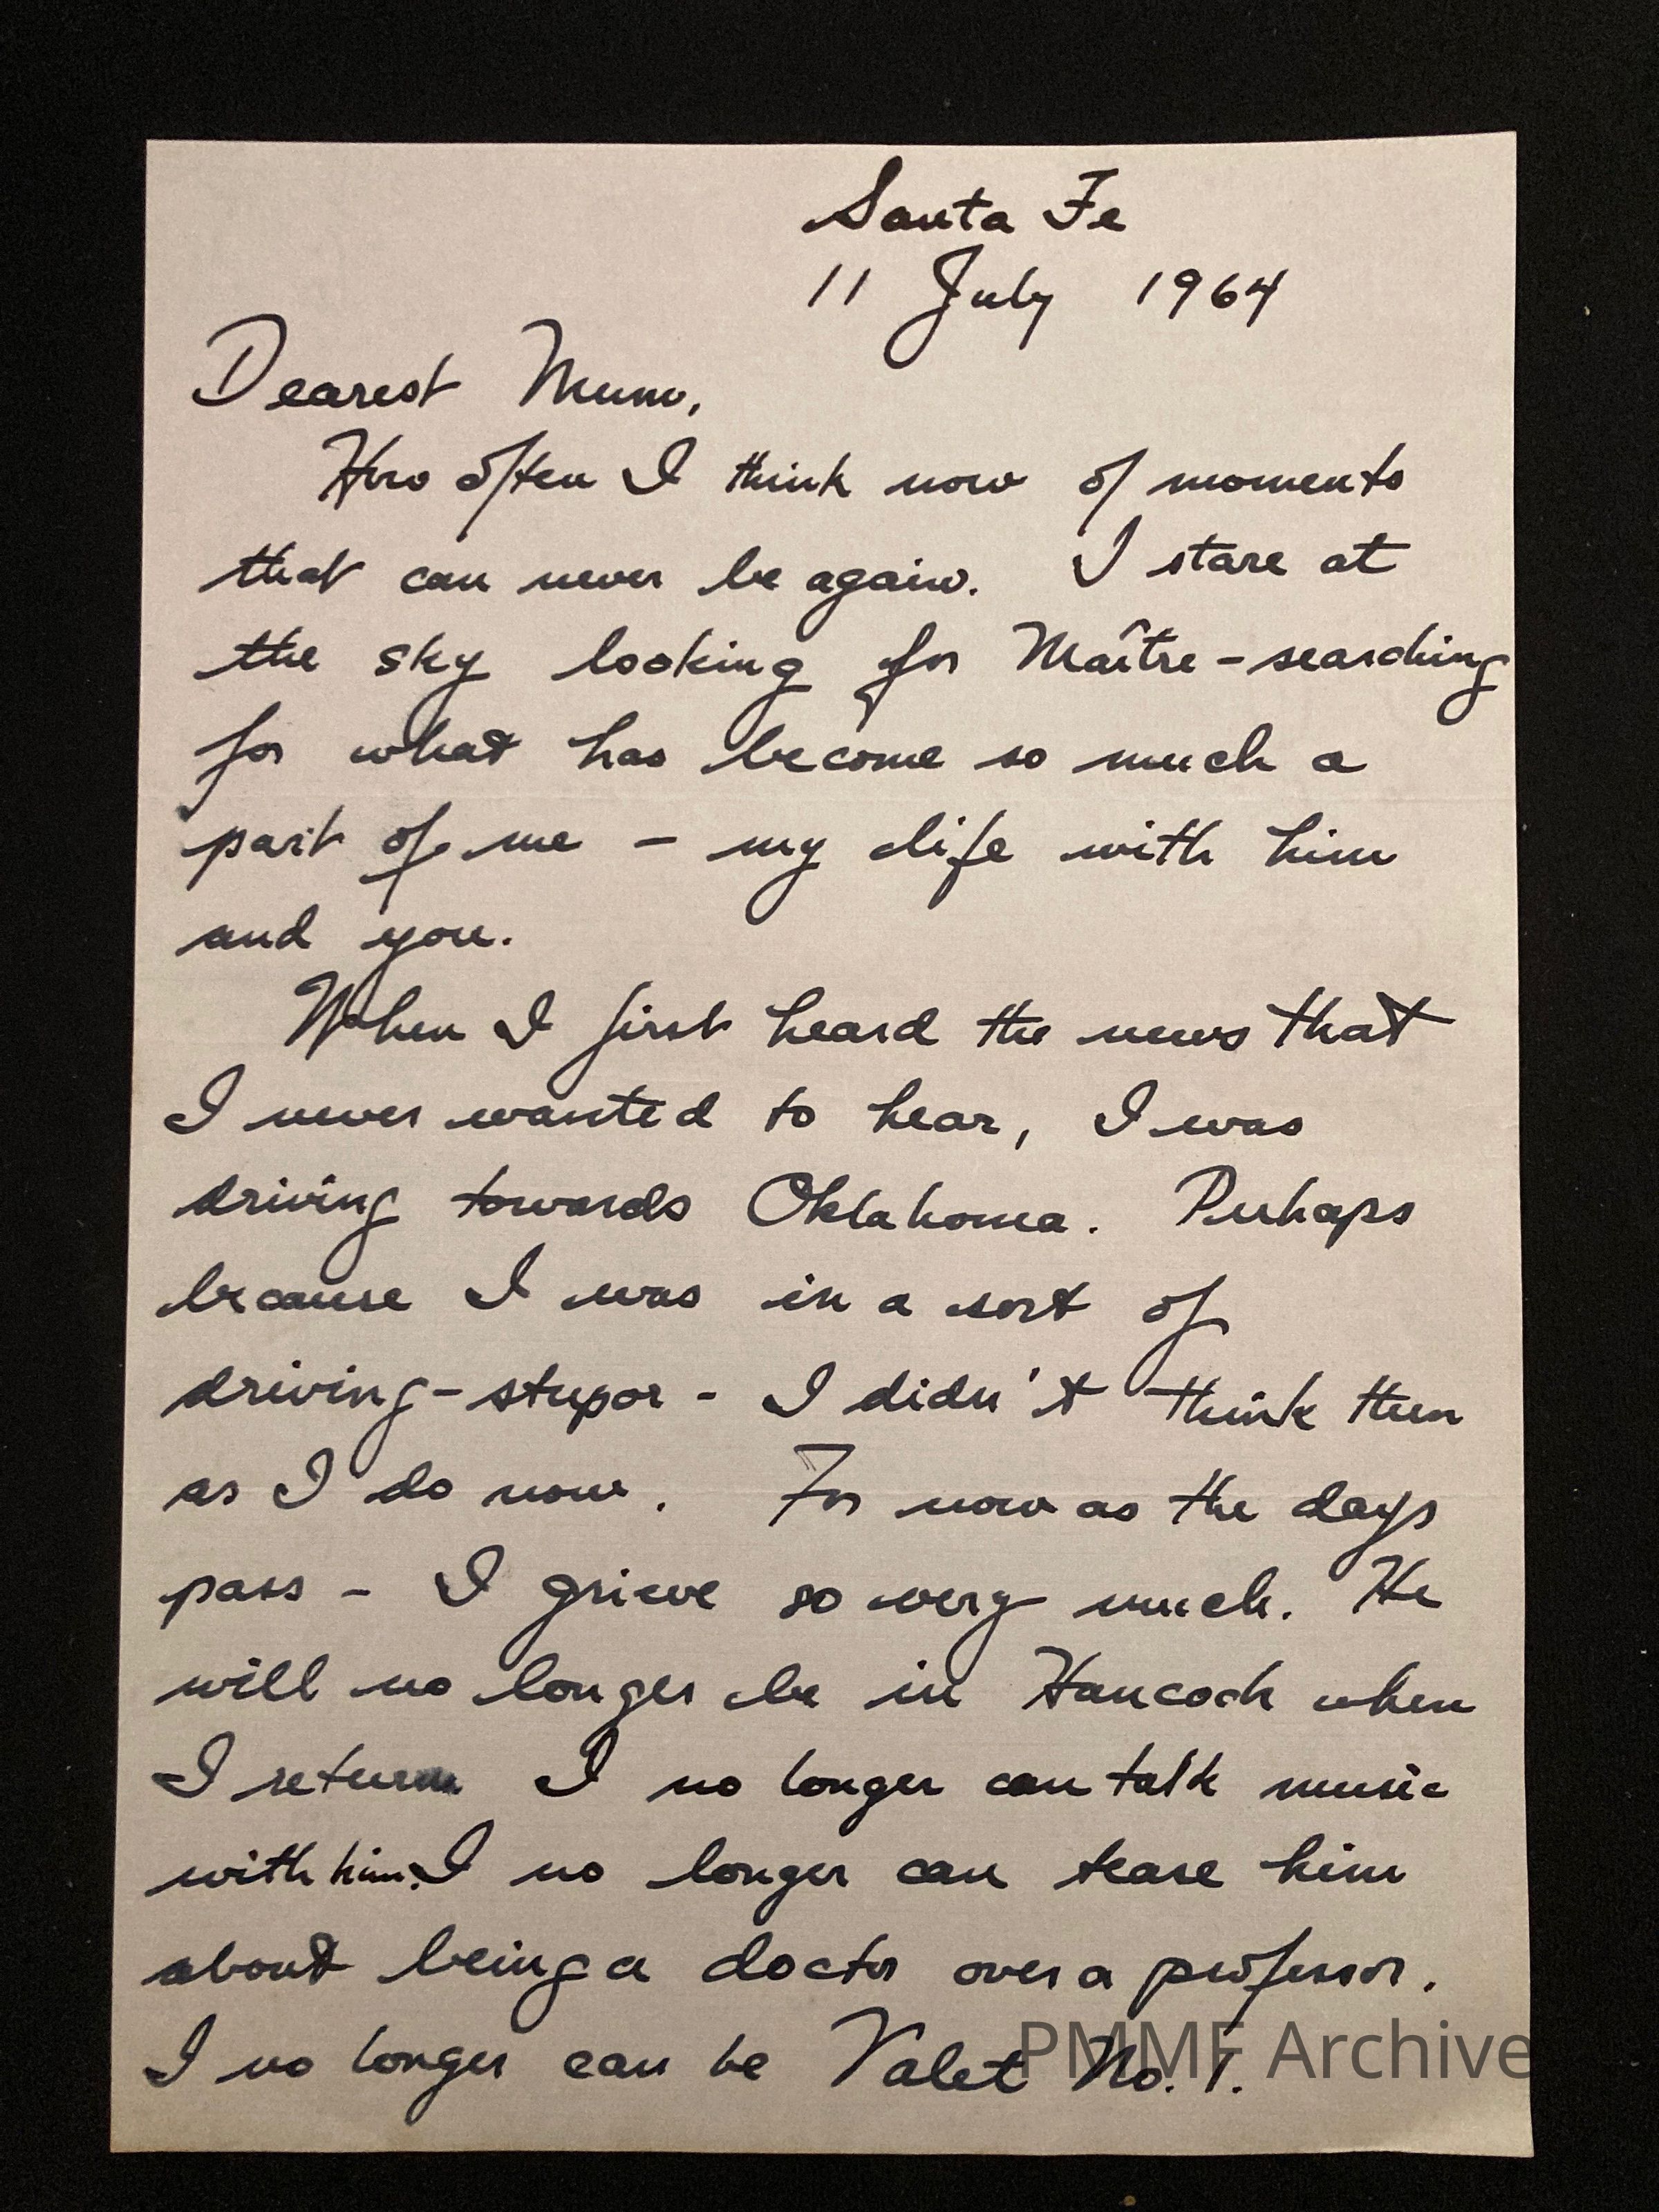 Santa Fe
11 July 1964
Dearest Mum,
How often I think now of moments
that can never be again. I stare at
the sky looking for Maître - searching
for what has become so much a
part of me - my life with him
and you.
When I first heard the news that
I never wanted to hear, I was
driving towards Oklahoma. Perhaps
because I was in a sort of
driving-stupor - I didn't think then
as I do now. For now as the days
pass - I grieve so very much. He
will no longer be in Hancock when
I return I no longer can talk music
with him. I no longer can tease him
about being a doctor over a professor.
I no longer can be Valet No. 1.
PMMF Archive